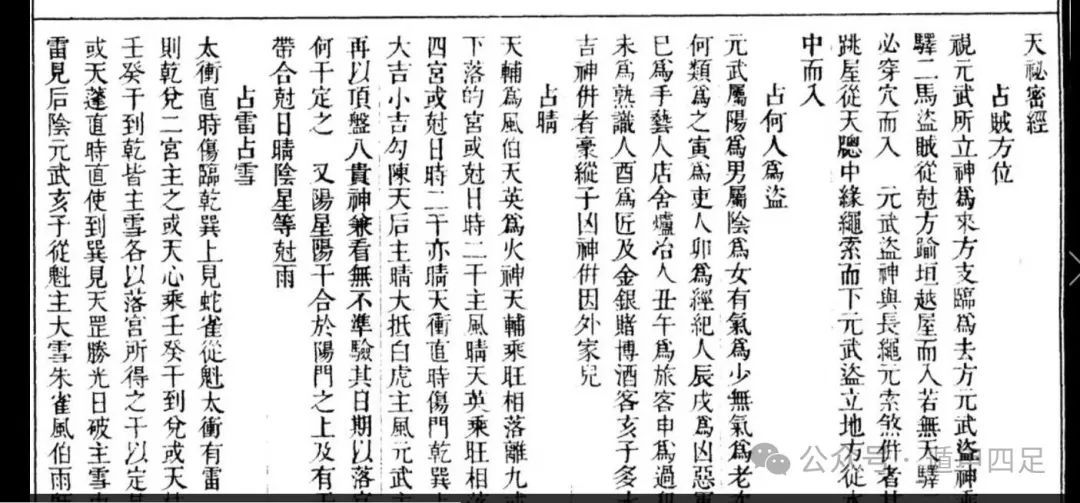 天祕密經
占賊方位
視元武所立神爲來方支臨爲去方元武盜神
驛二馬盜賊從尅方踰垣越屋而入若無天驛
必穿穴而入　元武盜神與長繩元索煞倂者
跳屋從天牕中緣繩索而下元武盜立地方從
中而入
占何人爲盜
元武屬陽爲男屬陰爲女有氣爲少無氣爲老
何類爲之寅爲吏人卯爲經紀人辰戌爲凶惡
巳爲手藝人店舍爐冶人丑午爲旅客申爲過
未爲熟識人酉爲匠及金銀賭博酒客亥子多
吉神倂者豪縱子凶神倂因外家兒
占晴
天輔爲風伯天英爲火神天輔乘旺相落離九
下落的宮或尅日時二干主風晴天英乘旺相
四宮或尅日時二干亦晴天衝直時傷門乾巽
大吉小吉勾陳天后主晴大抵白虎主風元武
再以頂盤八貴神兼看無不準驗其日期以落
何干定之　又陽星陽干合於陽門之上及有
帶合尅日晴陰星等尅雨
占雷占雪
太衝直時傷臨乾巽上見蛇雀從魁太衝有雷
則乾兌二宮主之或天心乘壬癸干到兌或天
壬癸干到乾皆主雪各以落宮所得之干以定
或天蓬直時直使到巽見天罡勝光日破主雪
雷見后陰元武亥子從魁主大雪朱雀風伯雨
公众号·遁甲四足